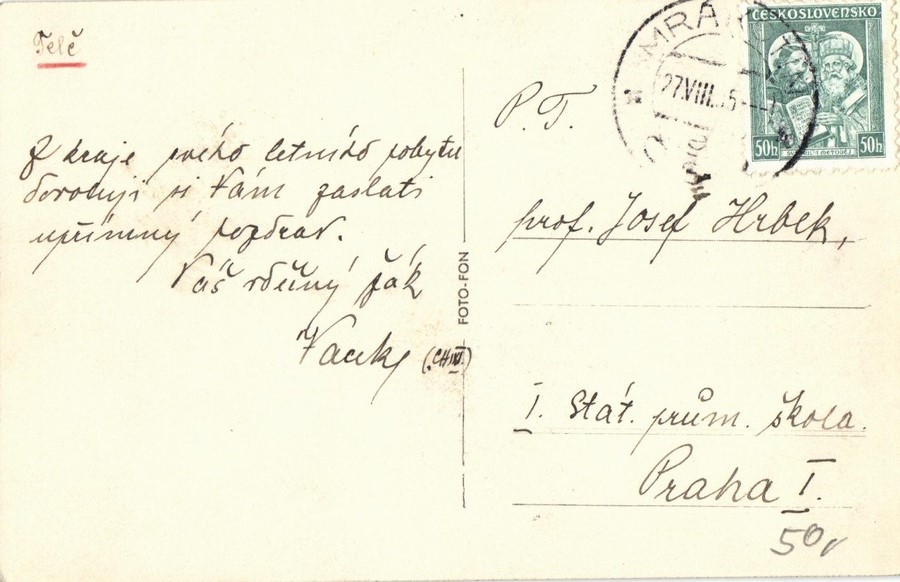 Telč
Z kraje svého letního pobytu
dovoluji si Vám zaslati
upřímný pozdrav.
Váš vděčný žák
(CHIV.)
FOTO-FON
MRÁK
27.VIII.
ČESKOSLOVENSKO
50h
50h
P. T.
prof. Josef Hrbek,
I. Stát. prům. škola.
Praha I.
50